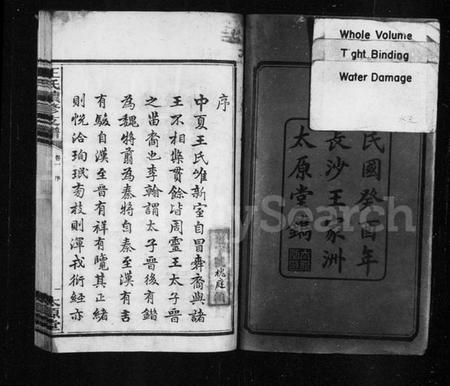 Whole Volume
Tight Binding
Water Damage
民國癸酉年
長沙王家洲
太原堂鐫
序
中夏王氏唯新室自冒舜裔與諸
王不相柴貫餘皆周靈王太子晉
之苗裔也李翰謂太子晉後有錯
為魏將翦為秦將自秦至漢有吉
有駿自漢至晉有祥有覽其正緒
則悅洽珣珉旁枝則渾戎衍經亦
王氏續修支譜
卷一 序
一 太原堂
MySearch